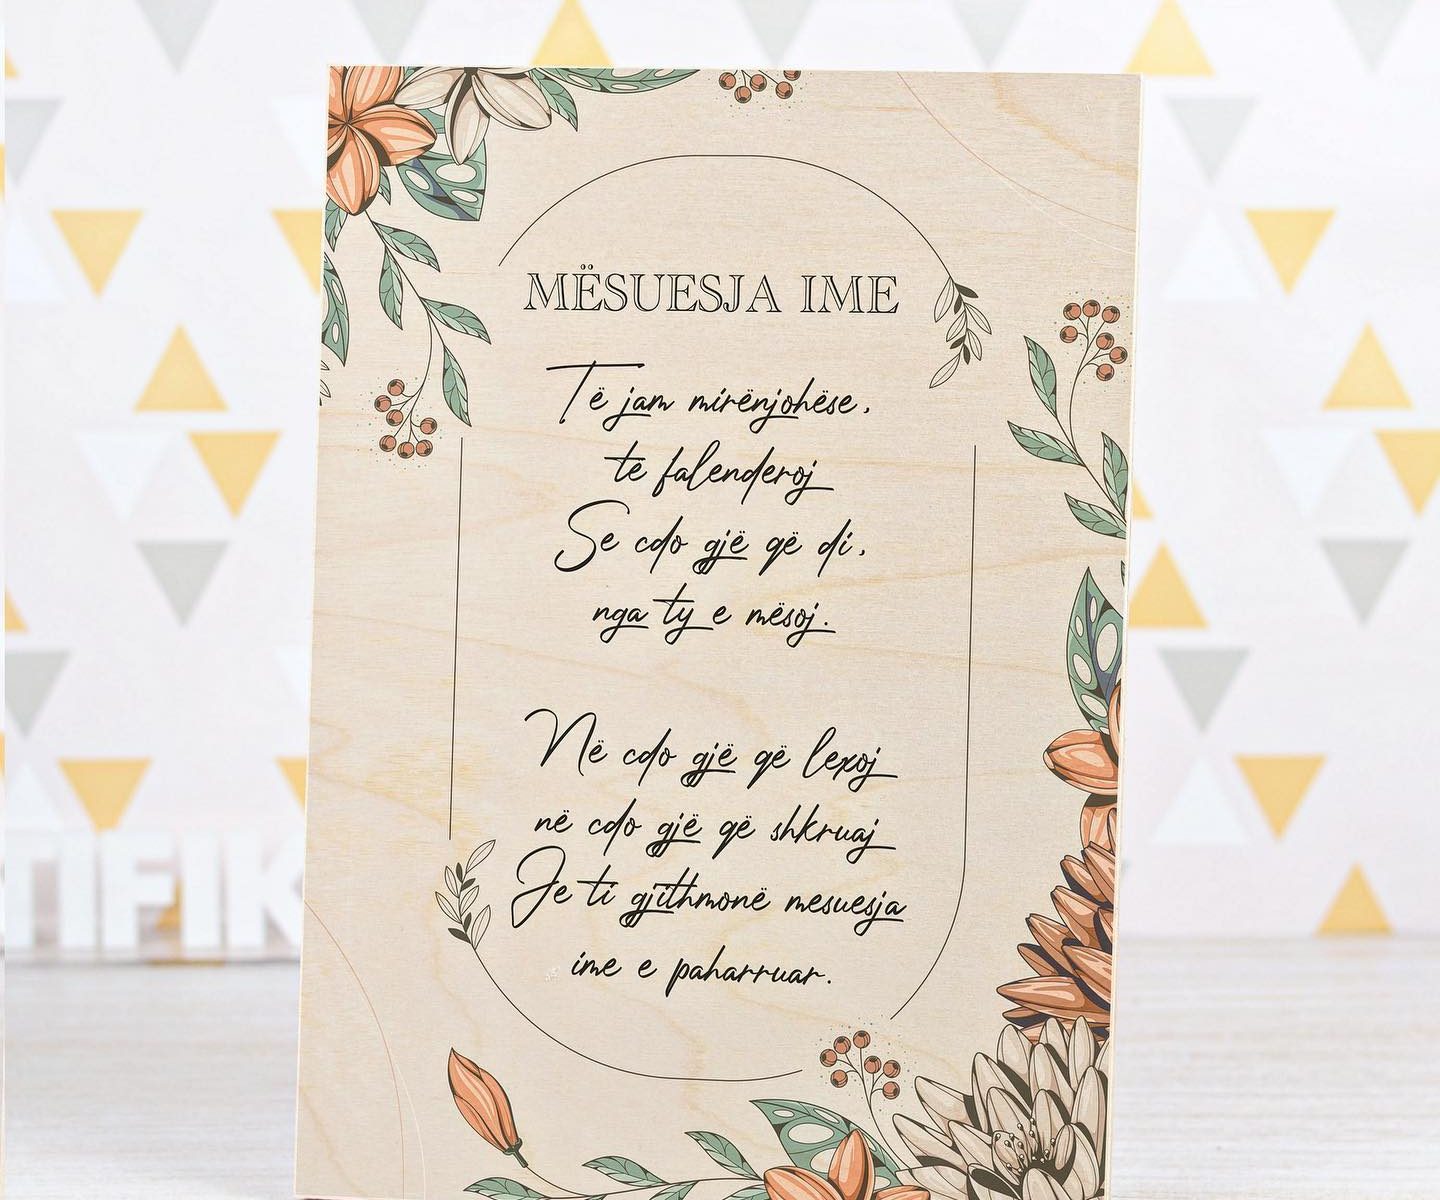 MËSUESJA IME
Të jam mirënjohëse,
të falenderoj
Se cdo gjë që di,
nga ty e mësoj.
Në cdo gjë që lexoj
në cdo gjë që shkruaj
Je ti gjithmonë mesuesja
ime e paharruar.
TIFIK